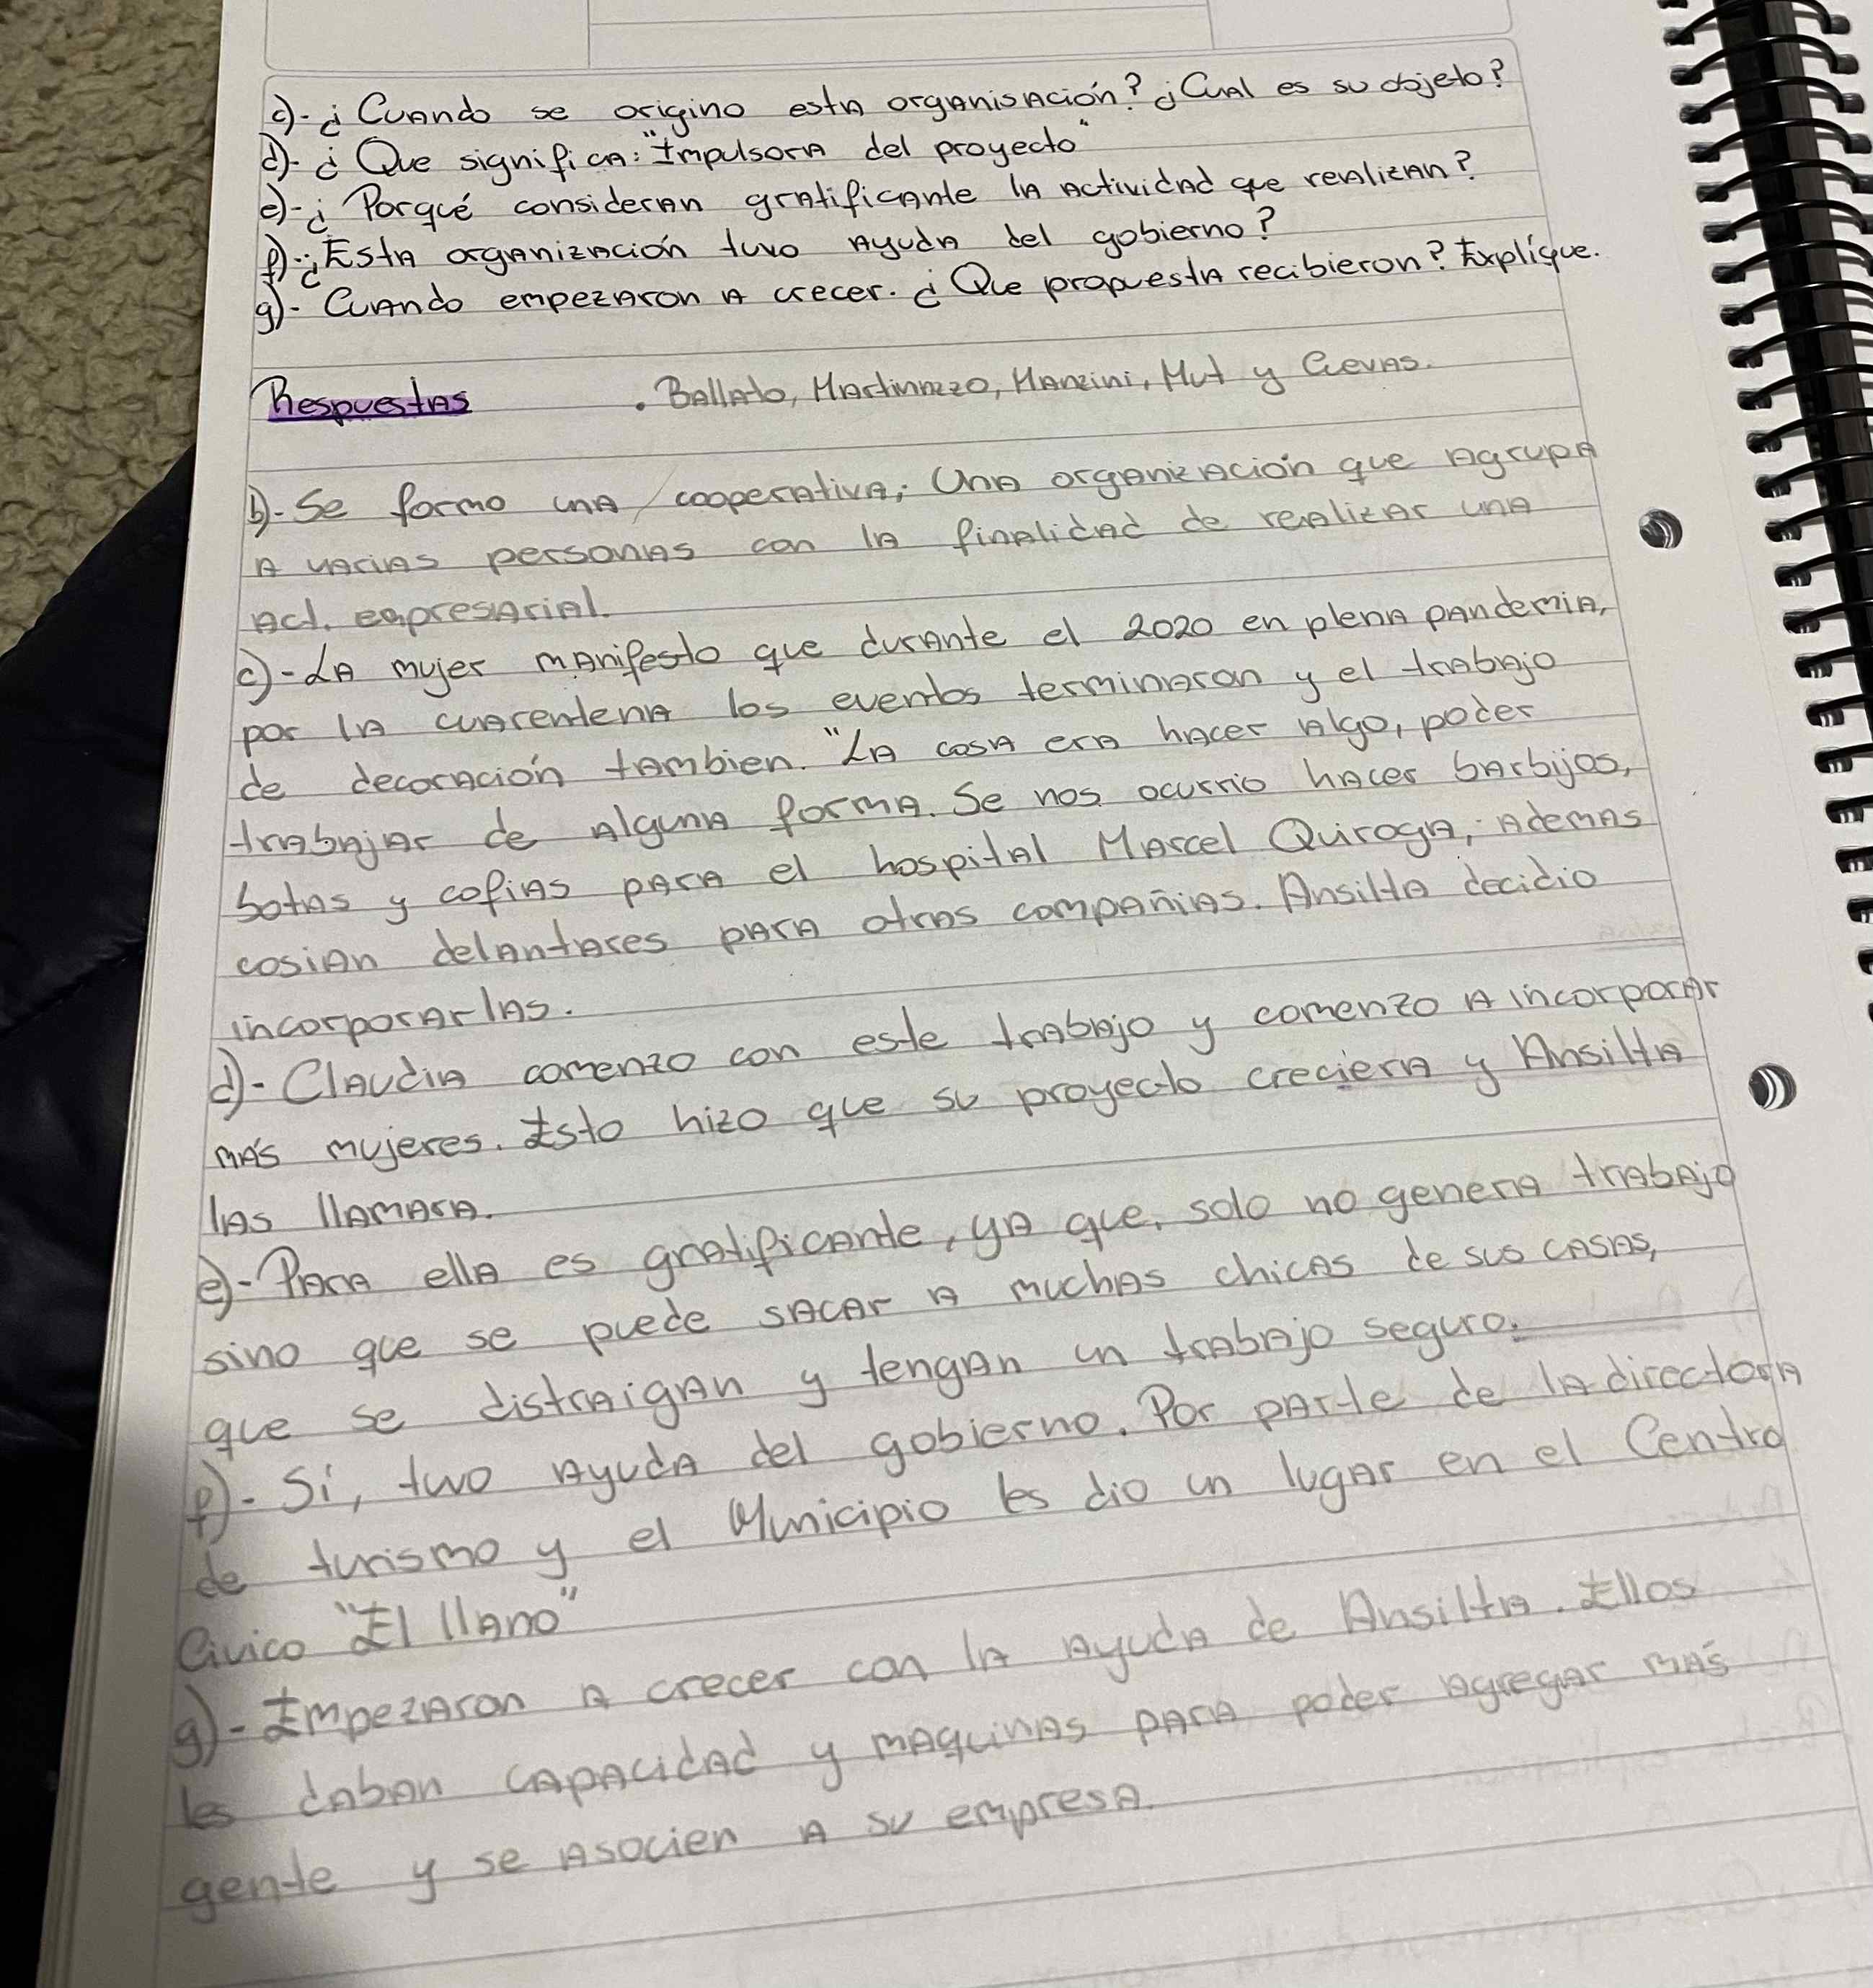 c)- ¿Cuando se origino esta organisación? ¿Cual es su objeto?
d)- ¿Que significa: "Impulsora del proyecto"
e)- ¿Porqué consideran gratificante la actividad que realizan?
f)- ¿Esta organización tuvo ayuda del gobierno?
g)- Cuando empezaron a crecer. ¿Que propuesta recibieron? Explique.
Respuestas . Ballato, Martinazzo, Manzini, Mut y Cuevas.
b)- Se formo una cooperativa; Una organización que agrupa
a varias personas con la finalidad de realizar una
act. empresarial.
c)- La mujer manifesto que durante el 2020 en plena pandemia,
por la cuarentena los eventos terminaron y el trabajo
de decoración tambien. "La cosa era hacer algo, poder
trabajar de alguna forma. Se nos ocurrio hacer barbijos,
botas y cofias para el hospital Marcel Quiroga; ademas
cosian delantares para otras compañias. Ansilta decidio
incorporarlas.
d)- Claudia comenzo con este trabajo y comenzo a incorporar
más mujeres. Esto hizo que su proyecto creciera y Ansilta
las llamara.
e)- Para ella es gratificante, ya que, solo no genera trabajo
sino que se puede sacar a muchas chicas de sus casas,
que se distraigan y tengan un trabajo seguro.
f)- Si, tuvo ayuda del gobierno. Por parte de la directora
de turismo y el Municipio les dio un lugar en el Centro
Civico "El llano"
g)- Empezaron a crecer con la ayuda de Ansilta. Ellos
les daban capacidad y maquinas para poder agregar más
gente y se asocien a su empresa.